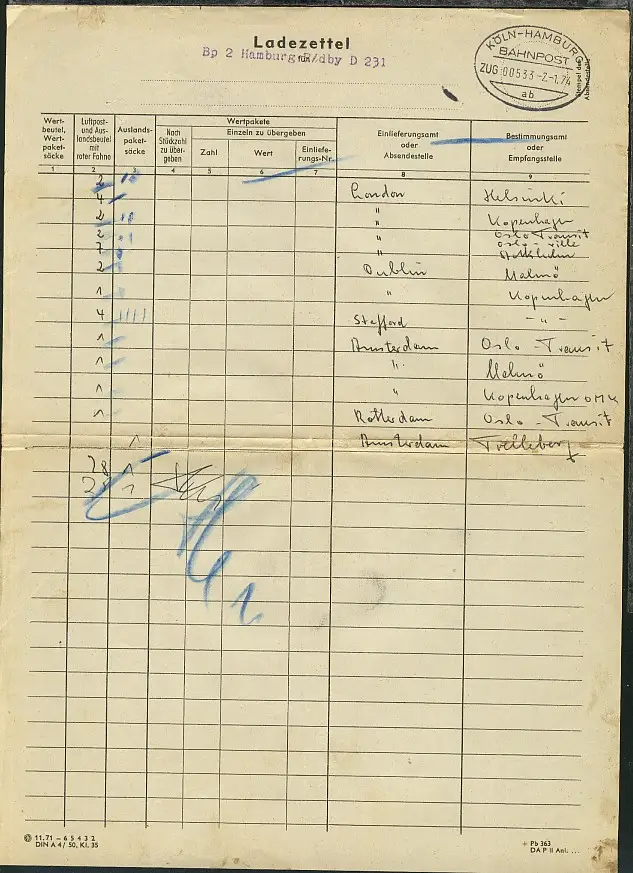 Ladezettel
für
Bp 2 Hamburg R/dby D 231
KÖLN-HAMBURG
BAHNPOST
ZUG 00533 -2-1.74
ab
Stempel der Absendestelle
Wert-beutel, Wert-paket-säcke
Luftpost- und Aus-landsbeutel mit roter Fahne
Auslands-paket-säcke
Nach Stückzahl zu über-geben
Wertpakete
Einzeln zu übergeben
Zahl
Wert
Einliefe-rungs-Nr.
Einlieferungsamt oder Absendestelle
Bestimmungsamt oder Empfangsstelle
1 2 3 4 5 6 7 8 9
2 London Helsinki
4 "
2 " Kopenhagen
2 " Oslo-Transit
7 " Oslo-ville
2 Dublin Malmö
1 " Kopenhagen
4 Stafford - " -
1 Amsterdam Oslo-Transit
1 " Malmö
1 " Kopenhagen OMK
1 Rotterdam Oslo-Transit
1 Amsterdam Trelleborg
28 1
11.71 – 6 5 4 3 2
DIN A 4/ 50, Kl. 35
+ Pb 363
DA P II Anl. ...